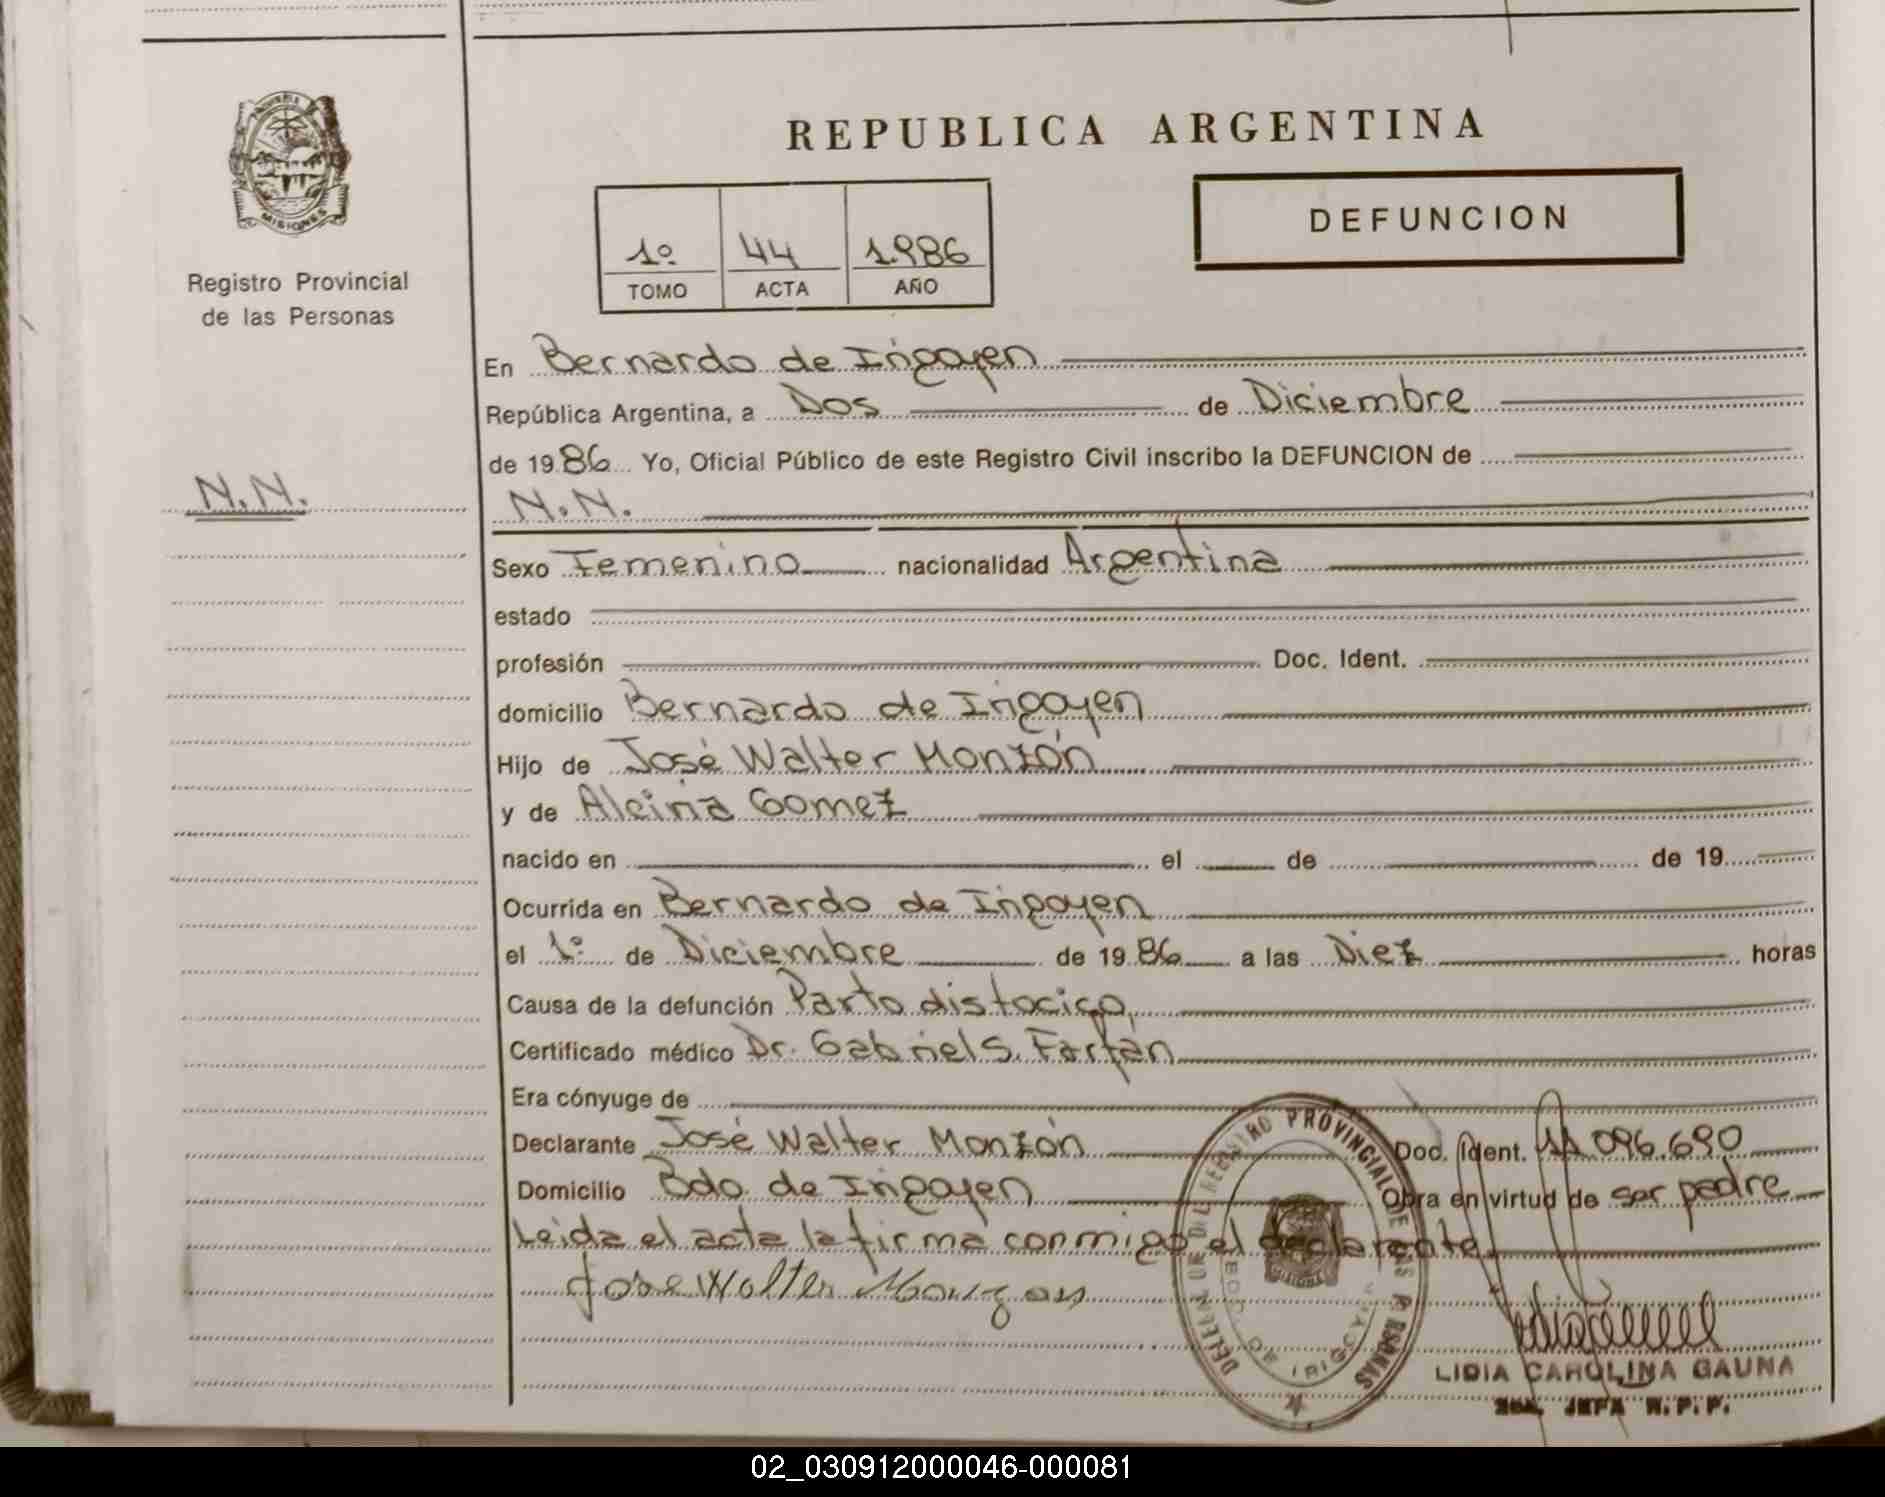 MISIONES
Registro Provincial
de las Personas
N.N.
REPUBLICA ARGENTINA
1º 44 1.986
TOMO ACTA AÑO
DEFUNCION
En Bernardo de Irigoyen
República Argentina, a Dos de Diciembre
de 19 86 Yo, Oficial Público de este Registro Civil inscribo la DEFUNCION de
N.N.
Sexo Femenino nacionalidad Argentina
estado
profesión Doc. Ident.
domicilio Bernardo de Irigoyen
Hijo de José Walter Monzón
y de Alcina Gomez
nacido en el de de 19
Ocurrida en Bernardo de Irigoyen
el 1º de Diciembre de 19 86 a las Diez horas
Causa de la defunción Parto distocico,
Certificado médico Dr. Gabriel S. Farfan
Era cónyuge de
Declarante José Walter Monzón Doc. Ident. 11.096.690
Domicilio Bdo. de Irigoyen Obra en virtud de ser padre
Leida el acta la firma conmigo el declarante
Jose Walter Monzon
REGISTRO PROVINCIAL DE LAS PERSONAS
BDO. DE IRIGOYEN
LIDIA CAROLINA GAUNA
JEFA R.P.P.
02_030912000046-000081